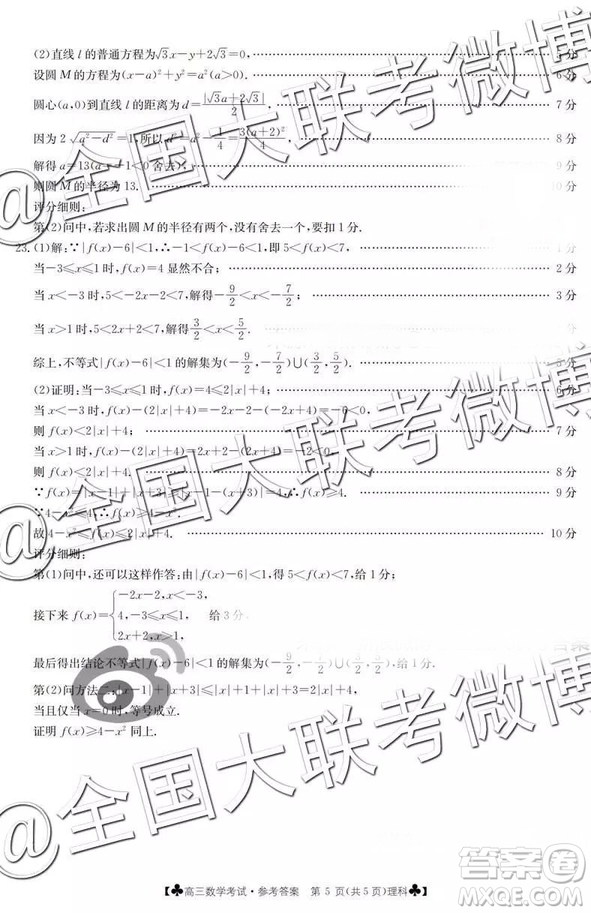 (2)直线 l 的普通方程为√3x-y+2√3=0, 5 分
设圆 M 的方程为(x-a)²+y²=a²(a>0). 6 分
圆心(a,0)到直线 l 的距离为 d=|√3a+2√3|/2, 7 分
因为 2√(a²-d²)=1,所以 d²=a²-1/4=3(a+2)²/4, 8 分
解得 a=13(a=-1<0 舍去), 9 分
则圆 M 的半径为 13. 10 分
评分细则:
第(2)问中,若求出圆 M 的半径有两个,没有舍去一个,要扣 1 分.
23.(1)解:∵|f(x)-6|<1,∴-1<f(x)-6<1,即5<f(x)<7, 1 分
当-3≤x≤1 时,f(x)=4 显然不合; 2 分
当 x<-3 时,5<-2x-2<7,解得-9/2<x<-7/2; 3 分
当 x>1 时,5<2x+2<7,解得3/2<x<5/2.
综上,不等式|f(x)-6|<1 的解集为(-9/2,-7/2)∪(3/2,5/2). 5 分
(2)证明:当-3≤x≤1 时,f(x)=4≤2|x|+4; 6 分
当 x<-3 时,f(x)-(2|x|+4)=-2x-2-(-2x+4)=-6<0,
则 f(x)<2|x|+4; 7 分
当 x>1 时,f(x)-(2|x|+4)=2x+2-(2x+4)=-2<0,
则 f(x)<2|x|+4. 8 分
∵f(x)=|x-1|+|x+3|≥4, 9 分
∵4-x²≤4,∴f(x)≥4-x².
故4-x²≤f(x)≤2|x|+4. 10 分
评分细则:
第(1)问中,还可以这样作答:由|f(x)-6|<1,得 5<f(x)<7,给 1 分;
接下来 f(x)={-2x-2,x<-3,
4,-3≤x≤1, 给 3 分
2x+2,x>1,
最后得出结论不等式|f(x)-6|<1 的解集为(-9/2,-7/2)∪(3/2,5/2)
第(2)问方法二:|x-1|+|x+3|≤|x|+1+|x|+3=2|x|+4,
当且仅当 x=0 时,等号成立.
证明 f(x)≥4-x² 同上.
♣高三数学考试·参考答案 第 5 页(共 5 页)理科♣
@全国大联考微博
@全国大联考微博
@全国大联考微博
答案圈
MXQE.COM